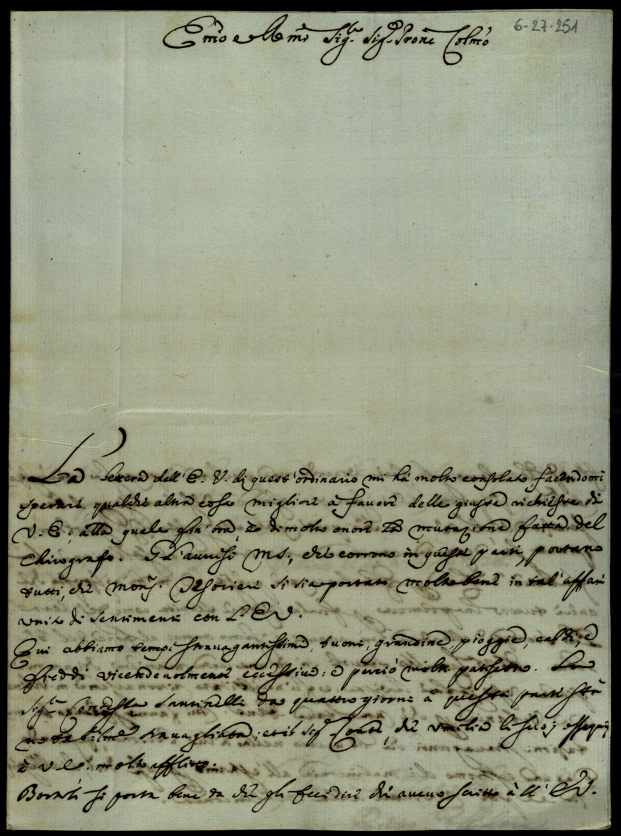 6-27-251
Em̃o e Rm̃o Sig.r Sig.r Prone Colmõ
La lettera dell'E. V. di quest'ordinario mi hà molto consolato facendomi
sperare qualche altra cosa migliore à favore delle giuste richieste di
V. E. alla quale stà di molto onore la mutazione fatta del
Chirografo. Gl'avvisi, che corrono in queste parti, portano
tutti, che Mons.r Tesoriere si sia portato molto bene in tal'affare
unito di sentimenti con l'E.V.
Qui abbiamo tempi stravagantissimi, tuoni, grandine, pioggie, caldi, e
freddi vicendevolmente eccessivi: e perciò molti patiscono. La
Sig.ra Contessa Santinelli da quattro giorni à questa parte stà
travagliata; et il Sig.r Conte, che umilia li suoi ossequi
à V.E. molto afflitto.
si porta bene da che gli feci dire che avevo scritto à ll'E.V.